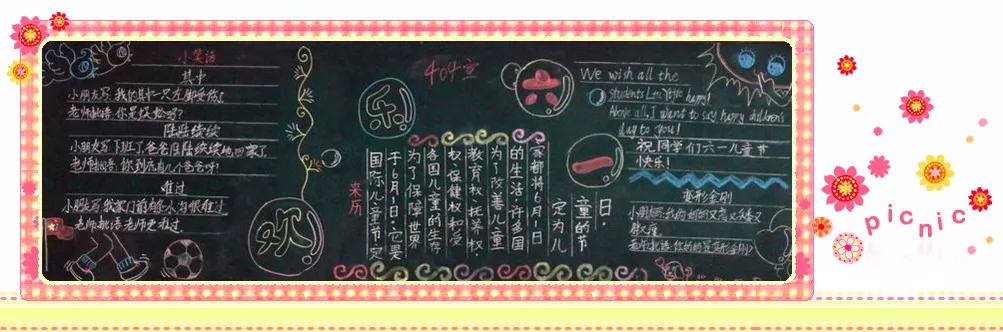 小笑话
其中
小朋友写:我的其中一只左脚受伤了
老师批语:你是蜈蚣吗?
陆陆续续
小朋友写:下班了,爸爸陆陆续续地回家了
老师批语:你到底有几个爸爸呀!
难过
小朋友写:我家门前有条水沟很难过
老师批语:老师更难过.
欢
乐
404室
六
一
来历
国际儿童节定
于6月1日。它是
为了保障世界
各国儿童的生存
权、保健权和受
教育权、抚养权,
为了改善儿童
的生活,许多国
家都将6月1日
定为儿
童的节
日。
We wish all the
students happy!
Above all, I want to say happy children's
day to you!
祝同学们六一儿童节
快乐!
变形金刚
小朋友写:我的妈妈又高又矮又
胖又瘦
老师批语:你妈妈是变形金刚?
picnic